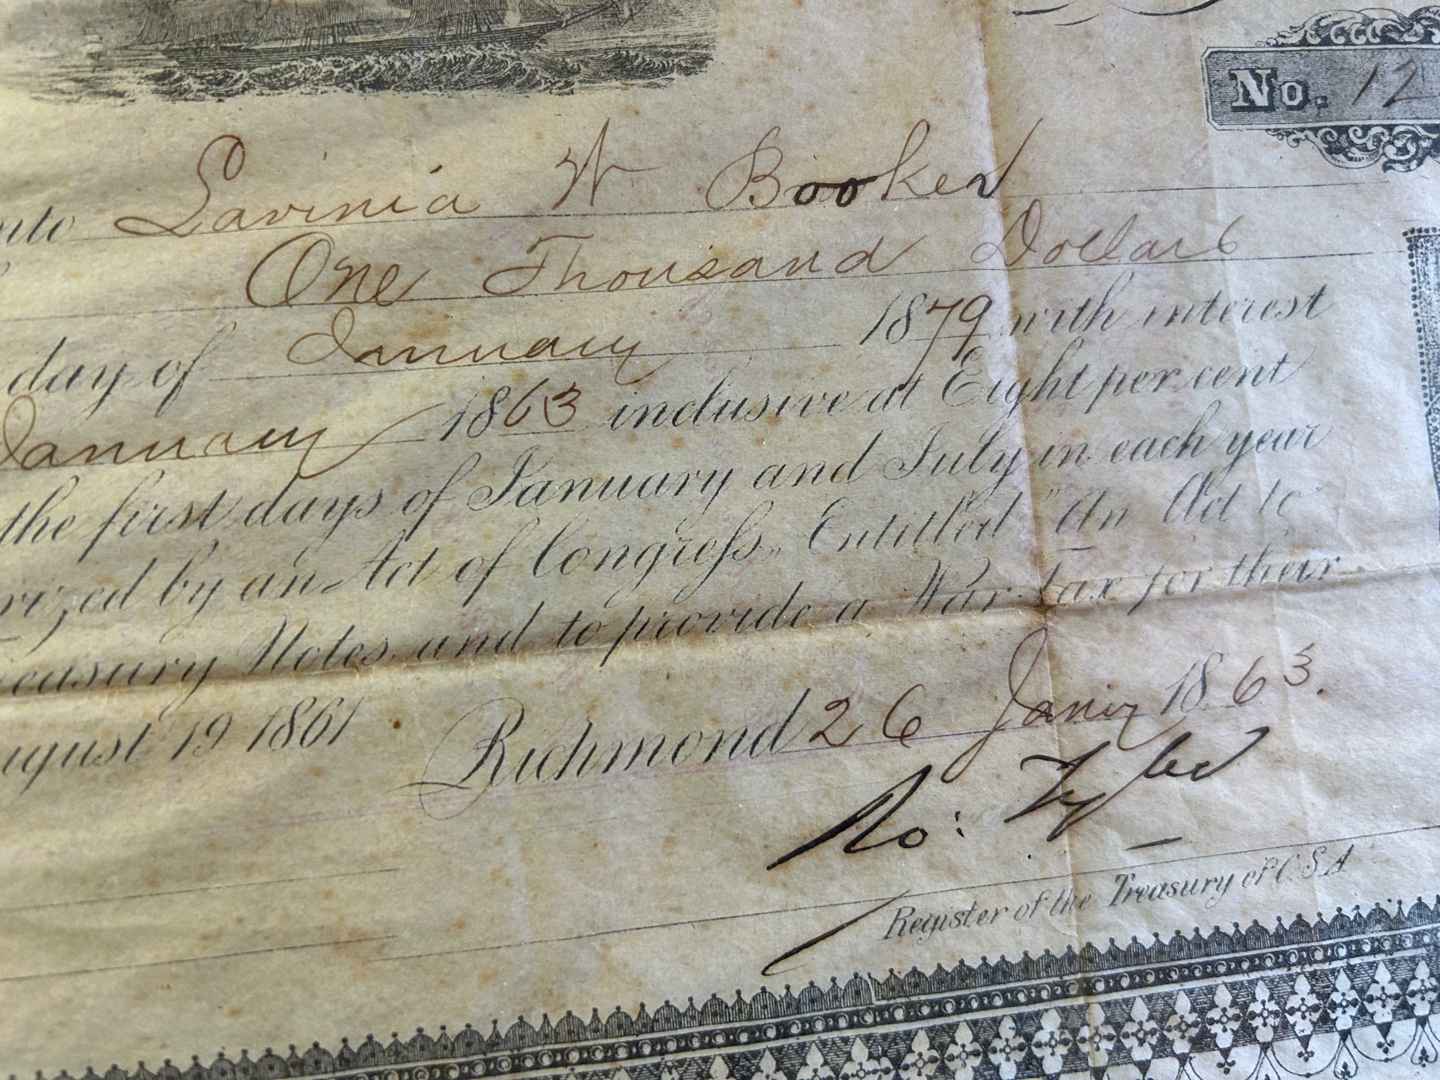 No. 12
unto Lavinia W Booker
One Thousand Dollars
day of January 1879 with interest
January 1863 inclusive at Eight per cent
the first days of January and July in each year
rized by an Act of Congress, Entitled "An Act to
reasury Notes and to provide a War Tax for their
ugust 19 1861 Richmond 26 Jany 1863.
Ro: Tyler
Register of the Treasury of C.S.A